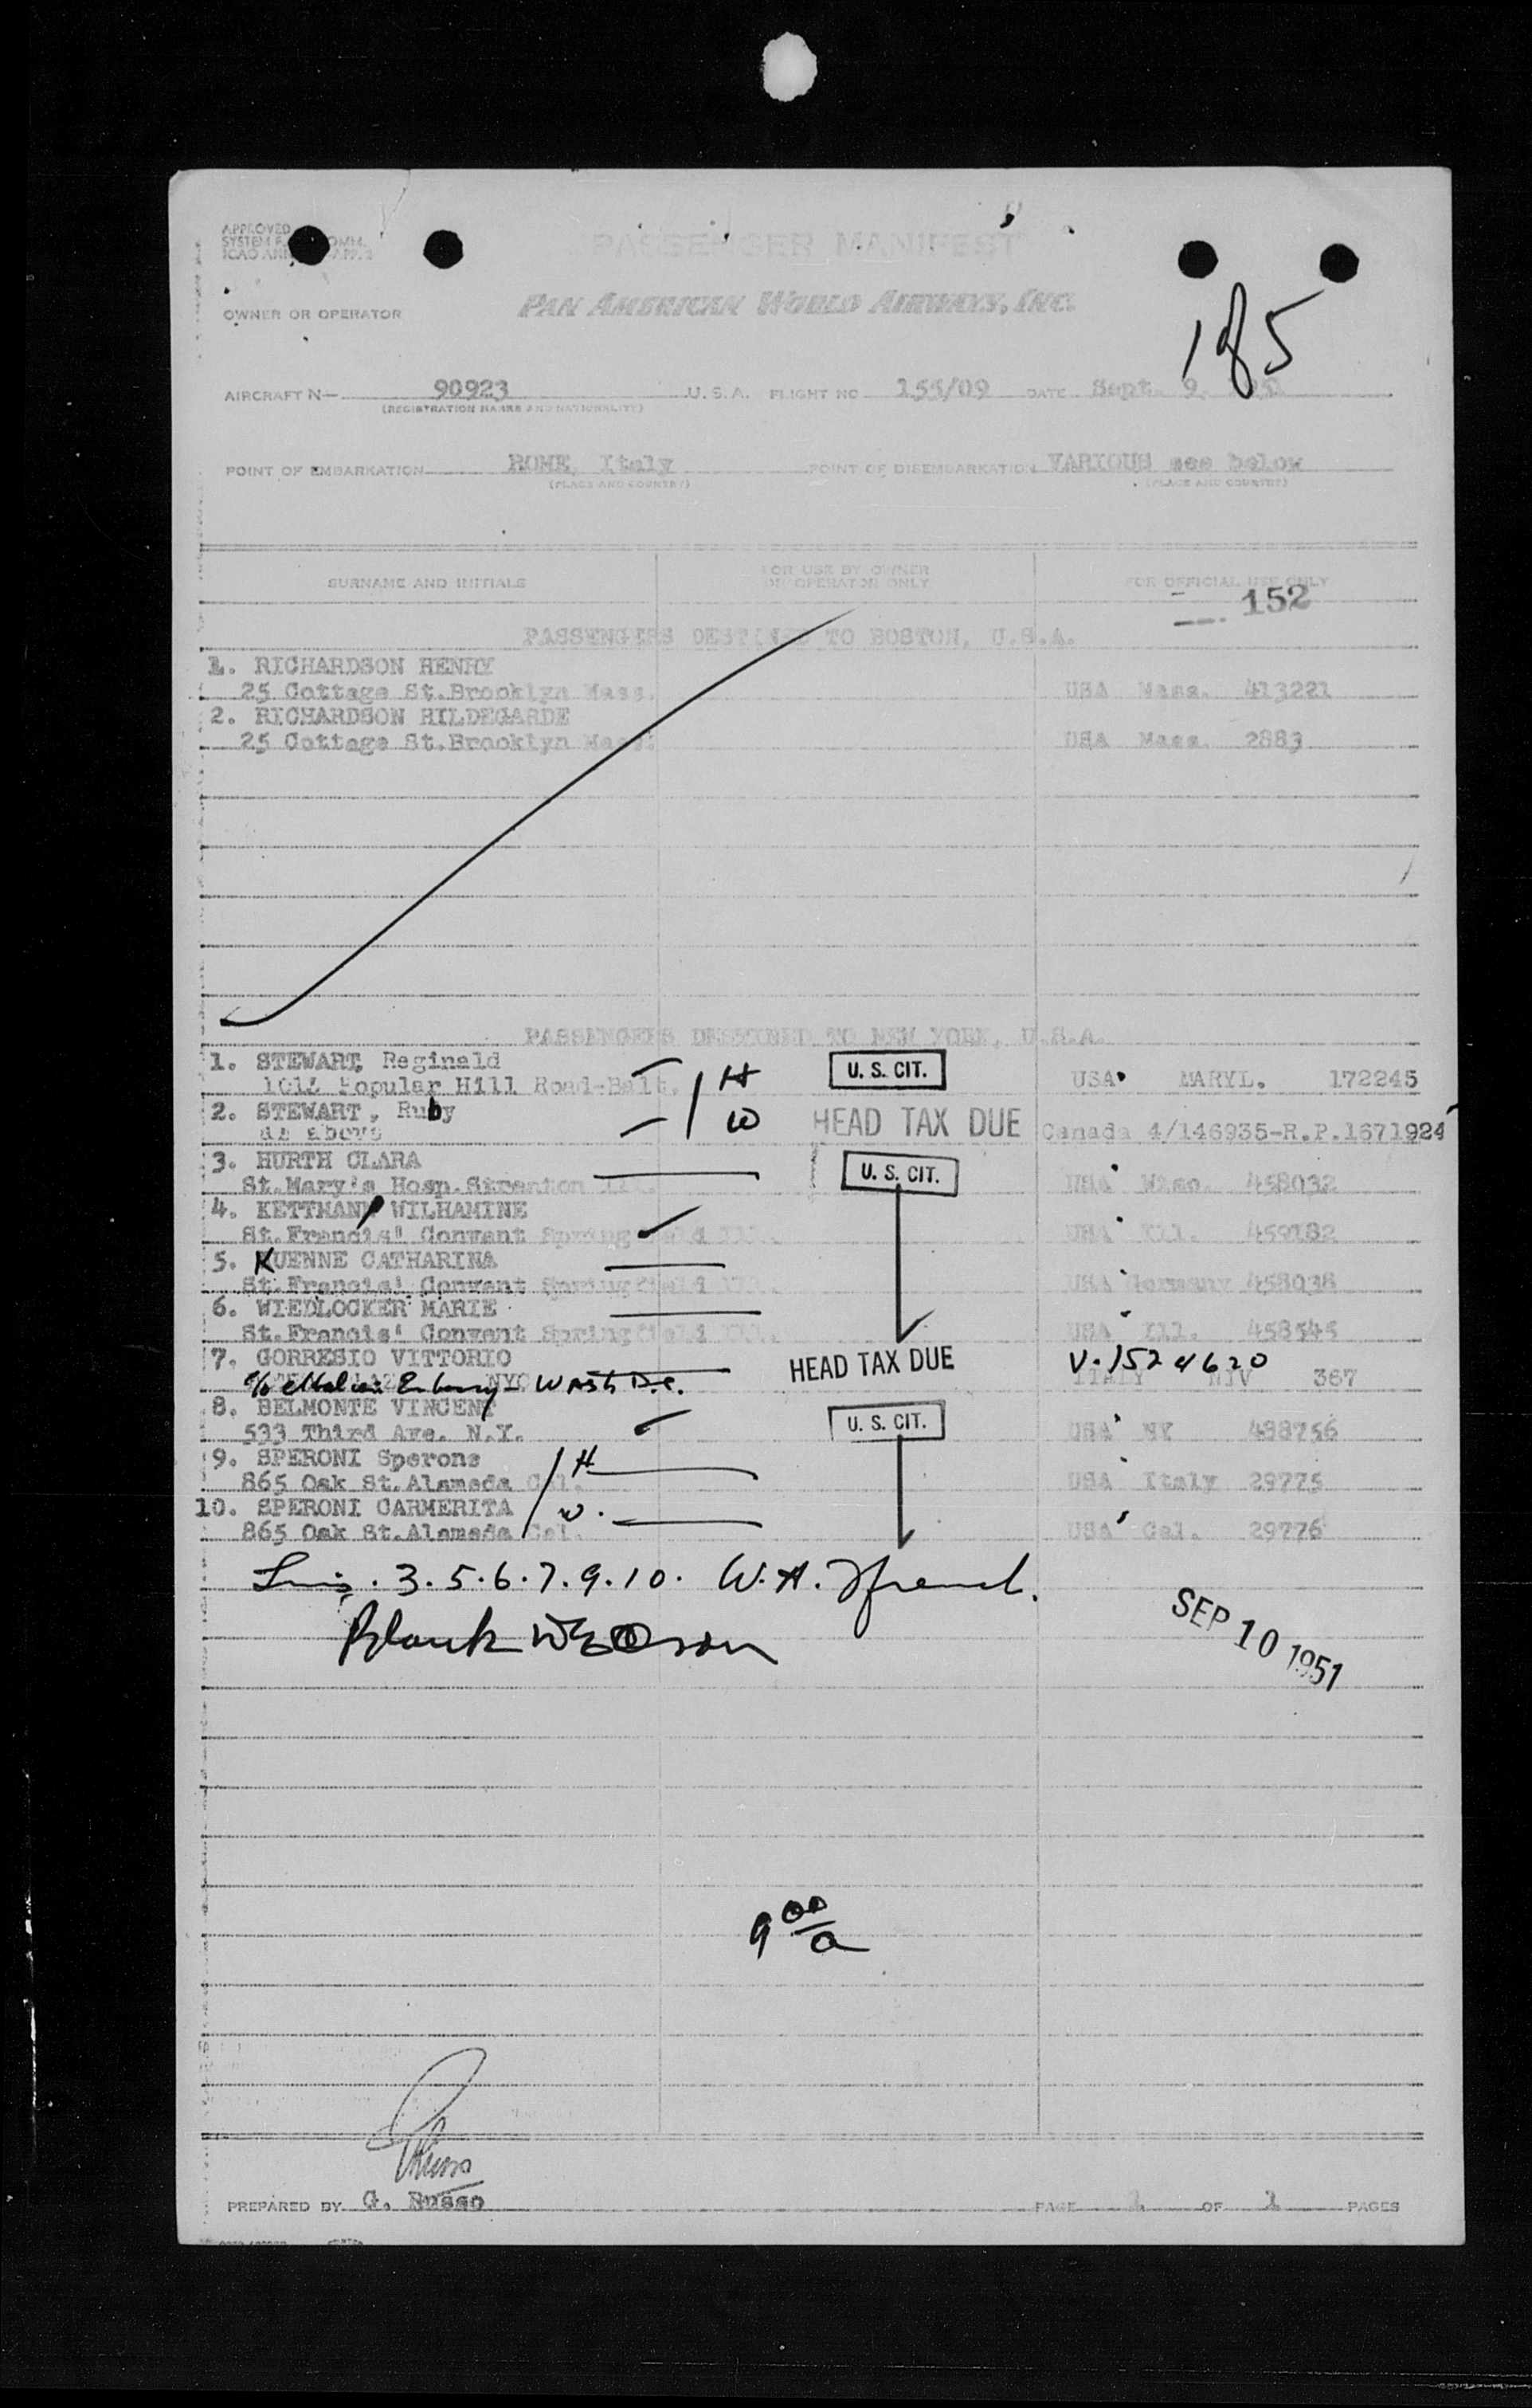 APPROVED
SYSTEM
ICAO ANN
PASSENGER MANIFEST
OWNER OR OPERATOR PAN AMERICAN WORLD AIRWAYS, INC.
185
AIRCRAFT N— 90923 U.S.A. FLIGHT NO 155/09 DATE Sept. 9, 1951
(REGISTRATION MARKS AND NATIONALITY)
POINT OF EMBARKATION ROME, Italy POINT OF DISEMBARKATION VARIOUS see below
(PLACE AND COUNTRY) (PLACE AND COUNTRY)
SURNAME AND INITIALS FOR USE BY OWNER OR OPERATOR ONLY FOR OFFICIAL USE ONLY
152
PASSENGERS DESTINED TO BOSTON, U.S.A.
1. RICHARDSON HENRY
25 Cottage St.Brooklyn Mass. USA Mass. 413221
2. RICHARDSON HILDEGARDE
25 Cottage St.Brooklyn Mass. USA Mass. 2883
PASSENGERS DESTINED TO NEW YORK, U.S.A.
1. STEWART, Reginald U. S. CIT.
Popular Hill Road-Balt. H USA MARYL. 172245
2. STEWART, Ruby W HEAD TAX DUE
as above Canada 4/146935-R.P.1671924
3. HURTH CLARA U. S. CIT.
St.Mary's Hosp. USA 458032
4. KETTMANN WILHAMINE
St.Francis' Convent Springfield Ill. USA Ill. 459182
5. KUENNE CATHARINA
St.Francis' Convent Springfield Ill. USA Germany 458038
6. WIEDLOCKER MARIE
St.Francis' Convent Springfield Ill. USA Ill. 458545
7. GORRESIO VITTORIO HEAD TAX DUE V-1524620
c/o Italian Embassy - Wash D.C. NYC ITALY NIV 367
8. BELMONTE VINCENT U. S. CIT.
533 Third Ave. N.Y. USA NY 488756
9. SPERONI Sperone H
865 Oak St.Alameda Cal. USA Italy 29775
10. SPERONI CARMERITA W.
865 Oak St.Alameda Cal. USA Cal. 29776
3.5.6.7.9.10. W.H.
SEP 10 1951
9 00/a
PREPARED BY G. Russo PAGE 1 OF 1 PAGES